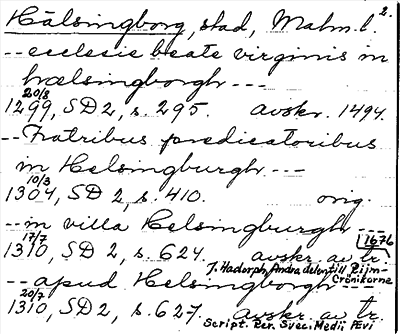 2.
Hälsingborg, stad, Malm. l.
-- ecclesie beate virginis in
hælsingborgh ---
20/8
1299, SD 2, s. 295. avskr. 1494.
-- Fratribus predicatoribus
in Helsingburgh ---
10/3
1304, SD 2, s. 410. orig.
-- in villa Helsingburgh ---
17/7 1676
1310, SD 2, s. 624. avskr. av tr.
J. Hadorph, Andra delen till Rijm-
Crönikorne
-- apud Helsingborgh ---
20/7
1310, SD2, s. 627. avskr. av tr.
Script. Rer. Svec. Medii Ævi